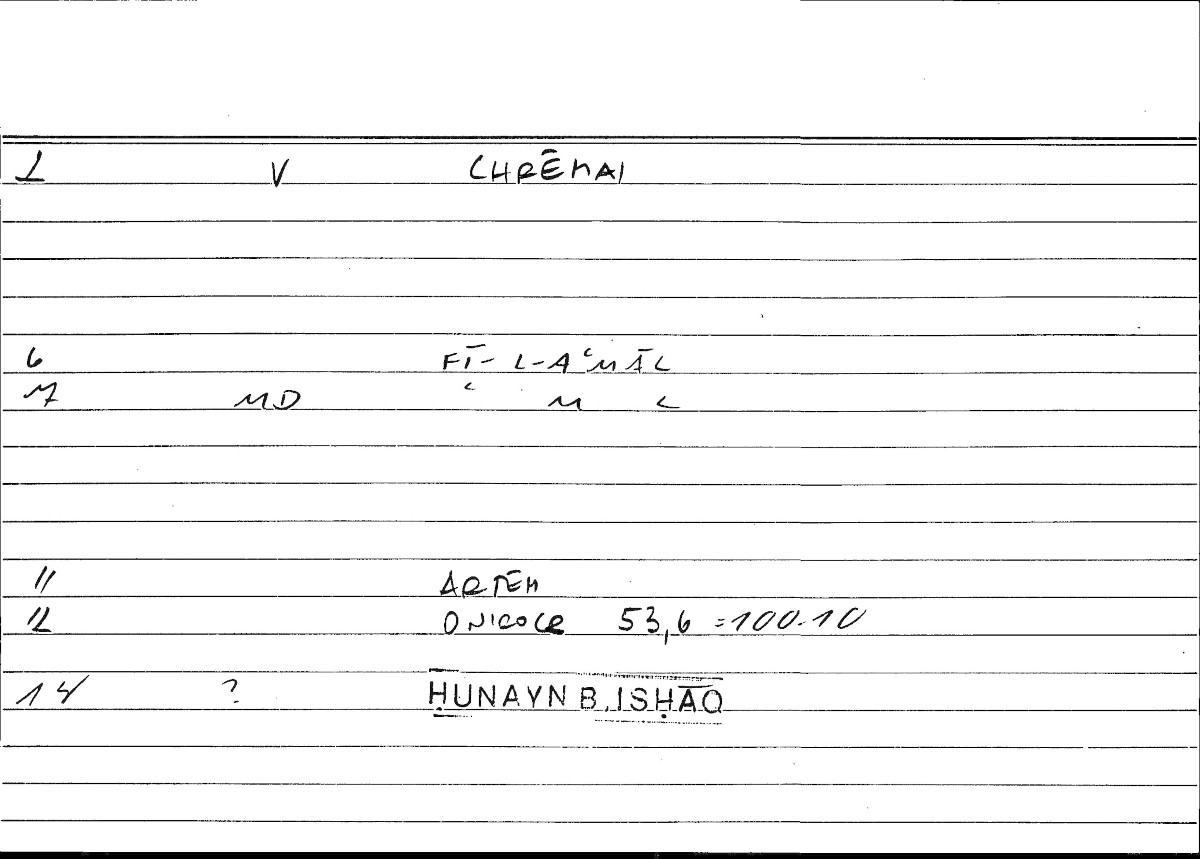 1 V CHRĒMAI
6 FĪ-L-AʿMĀL
7 MD
11 ARTĒM
12 ONIROCR 53,6 =100.10
14 ? ḤUNAYN B. ISḤĀQ